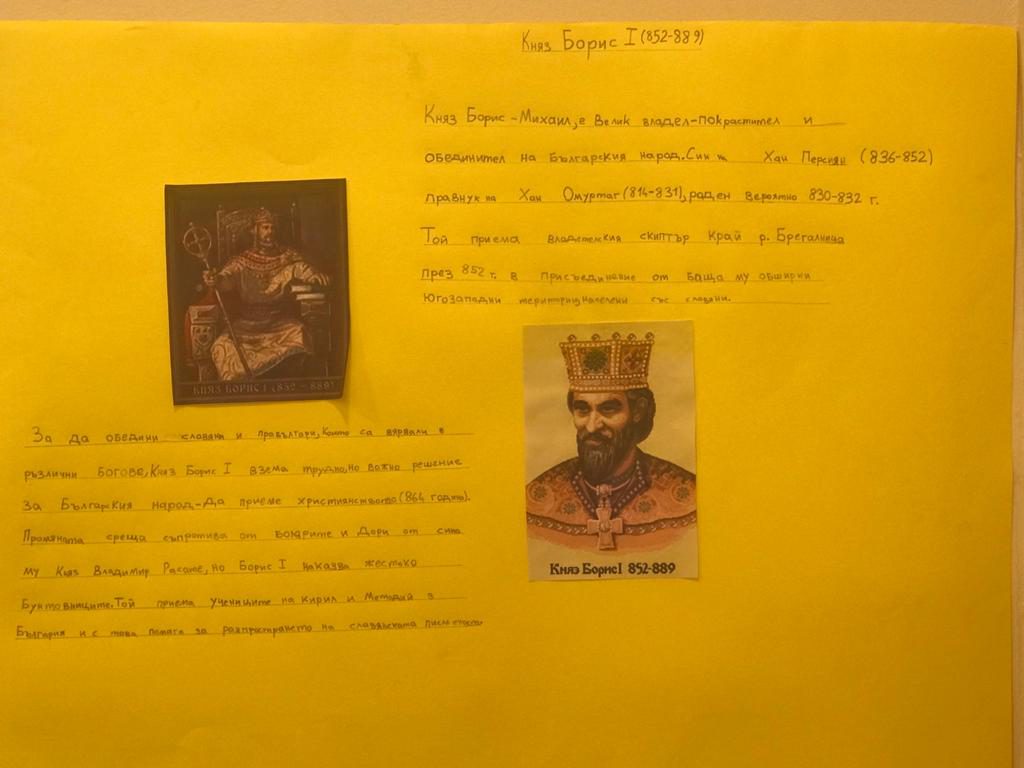 Княз Борис I (852-889)
Княз Борис-Михаил, е Велик владел-покрастител и
обединител на Българския народ. Син на Хан Персиян (836-852)
правнук на Хан Омуртаг (814-831), раден вероятно 830-832 г.
Той приема владетелския скиптър край р. Брегалница
през 852 г. в присъединение от баща му обширни
Югозападни територии, населени със славяни.
КНЯЗ БОРИС I (852 - 889)
Княз Борис I 852-889
За да обедини славяни и прабългари, които са вярвали в
ръзлични богове, Княз Борис I взема трудно, но важно решение
за Българския народ-Да приеме християнството (864 година).
Промяната среща съпротива от болярите и Дори от сина
му Княз Владимир Расате, но Борис I наказва жестоко
Бунтовниците. Той приема учениците на Кирил и Методий в
България и с това помага за разпространето на славянската